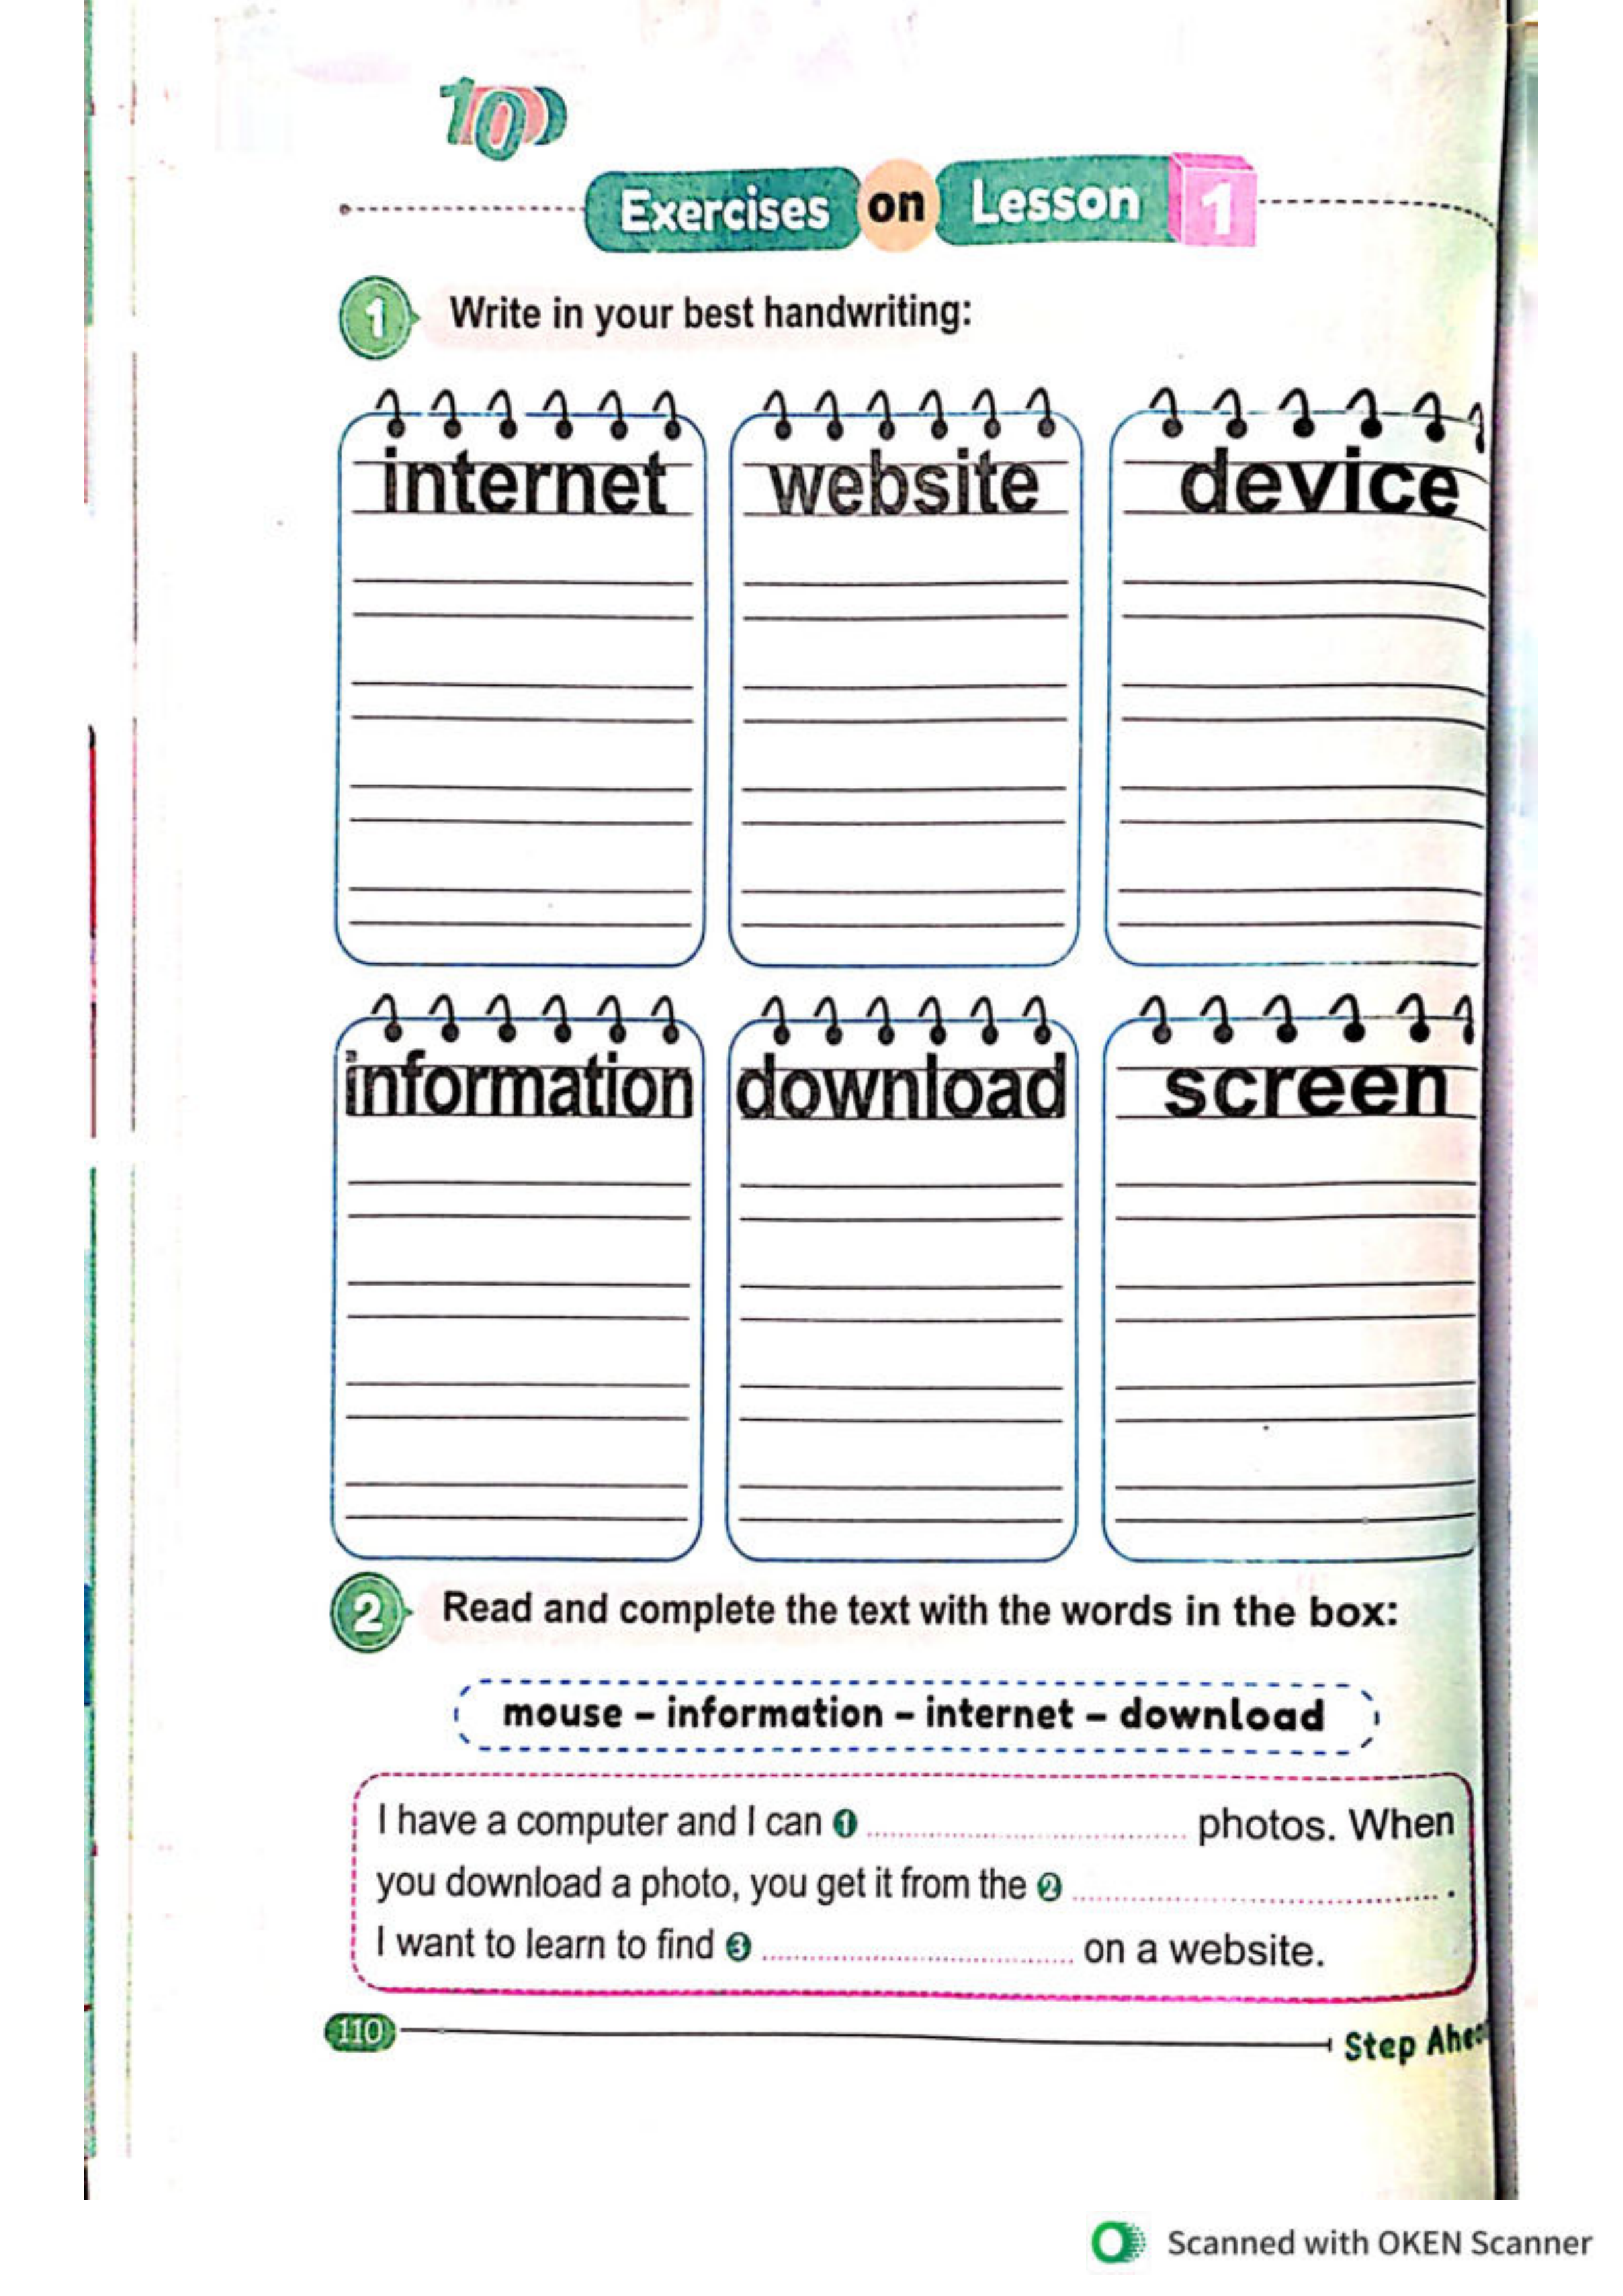 Exercises on Lesson 1
1 Write in your best handwriting:
internet website device
information download screen
2 Read and complete the text with the words in the box:
mouse – information – internet – download
I have a computer and I can 1 ........................ photos. When
you download a photo, you get it from the 2 ........................ .
I want to learn to find 3 ........................ on a website.
110
Step
Scanned with OKEN Scanner